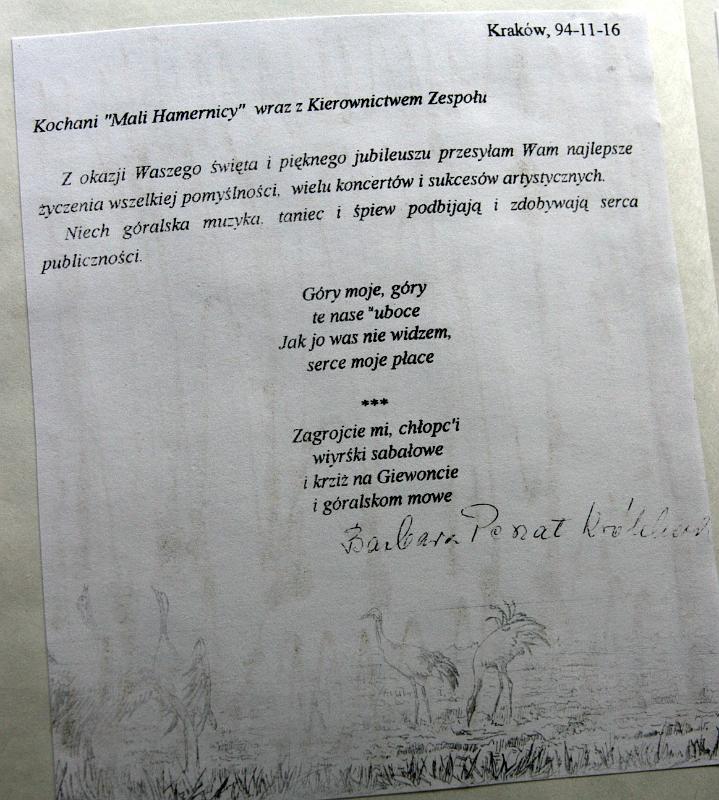 Kraków, 94-11-16
Kochani "Mali Hamernicy" wraz z Kierownictwem Zespołu
Z okazji Waszego święta i pięknego jubileuszu przesyłam Wam najlepsze
życzenia wszelkiej pomyślności, wielu koncertów i sukcesów artystycznych.
Niech góralska muzyka, taniec i śpiew podbijają i zdobywają serca
publiczności.
Góry moje, góry
te nase "uboce
Jak jo was nie widzem,
serce moje płace
***
Zagrojcie mi, chłopc'i
wiyrśki sabałowe
i krziż na Giewoncie
i góralskom mowe
Barbara